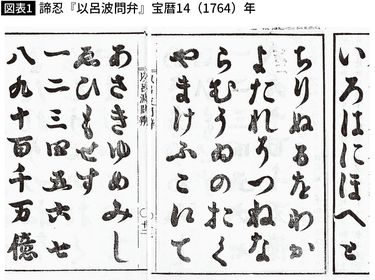 図表1 諦忍『以呂波問弁』宝暦14（1764）年
いろはにほへと
ちりぬるをわか
よたれそつねな
らむうゐのおく
やまけふこれて
以呂波問辨
あさきゆめみし
ゑひもせす
一二三四五六七
八九十百千万億